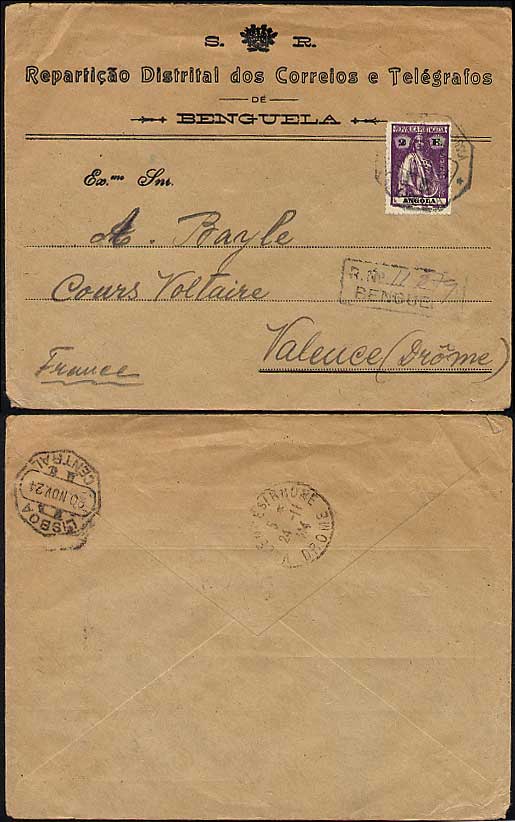 S. R.
Repartição Distrital dos Correios e Telégrafos
DE
BENGUELA
REPUBLICA PORTUGUESA
2 E.
ANGOLA
Ex.mo Snr.
A. Bayle
Cours Voltaire
R. No.
BENGUE
Valence (Drôme)
France
LISBOA
20 NOV. 24
CENTRAL
5 *
24 -11
24
DROME